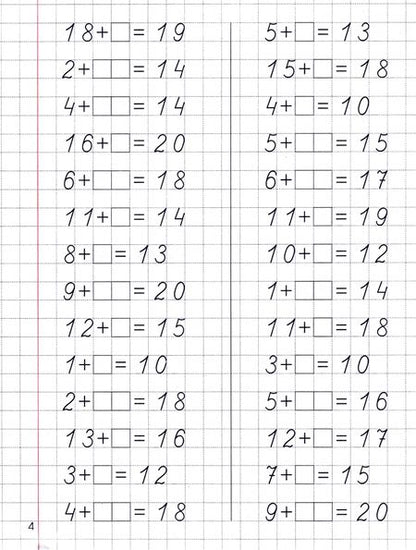 18+□=19
2+□□=14
4+□□=14
16+□=20
6+□□=18
11+□=14
8+□=13
9+□□=20
12+□=15
1+□=10
2+□□=18
13+□=16
3+□=12
4+□□=18
5+□=13
15+□=18
4+□=10
5+□□=15
6+□□=17
11+□=19
10+□=12
1+□□=14
11+□=18
3+□=10
5+□□=16
12+□=17
7+□=15
9+□□=20
4